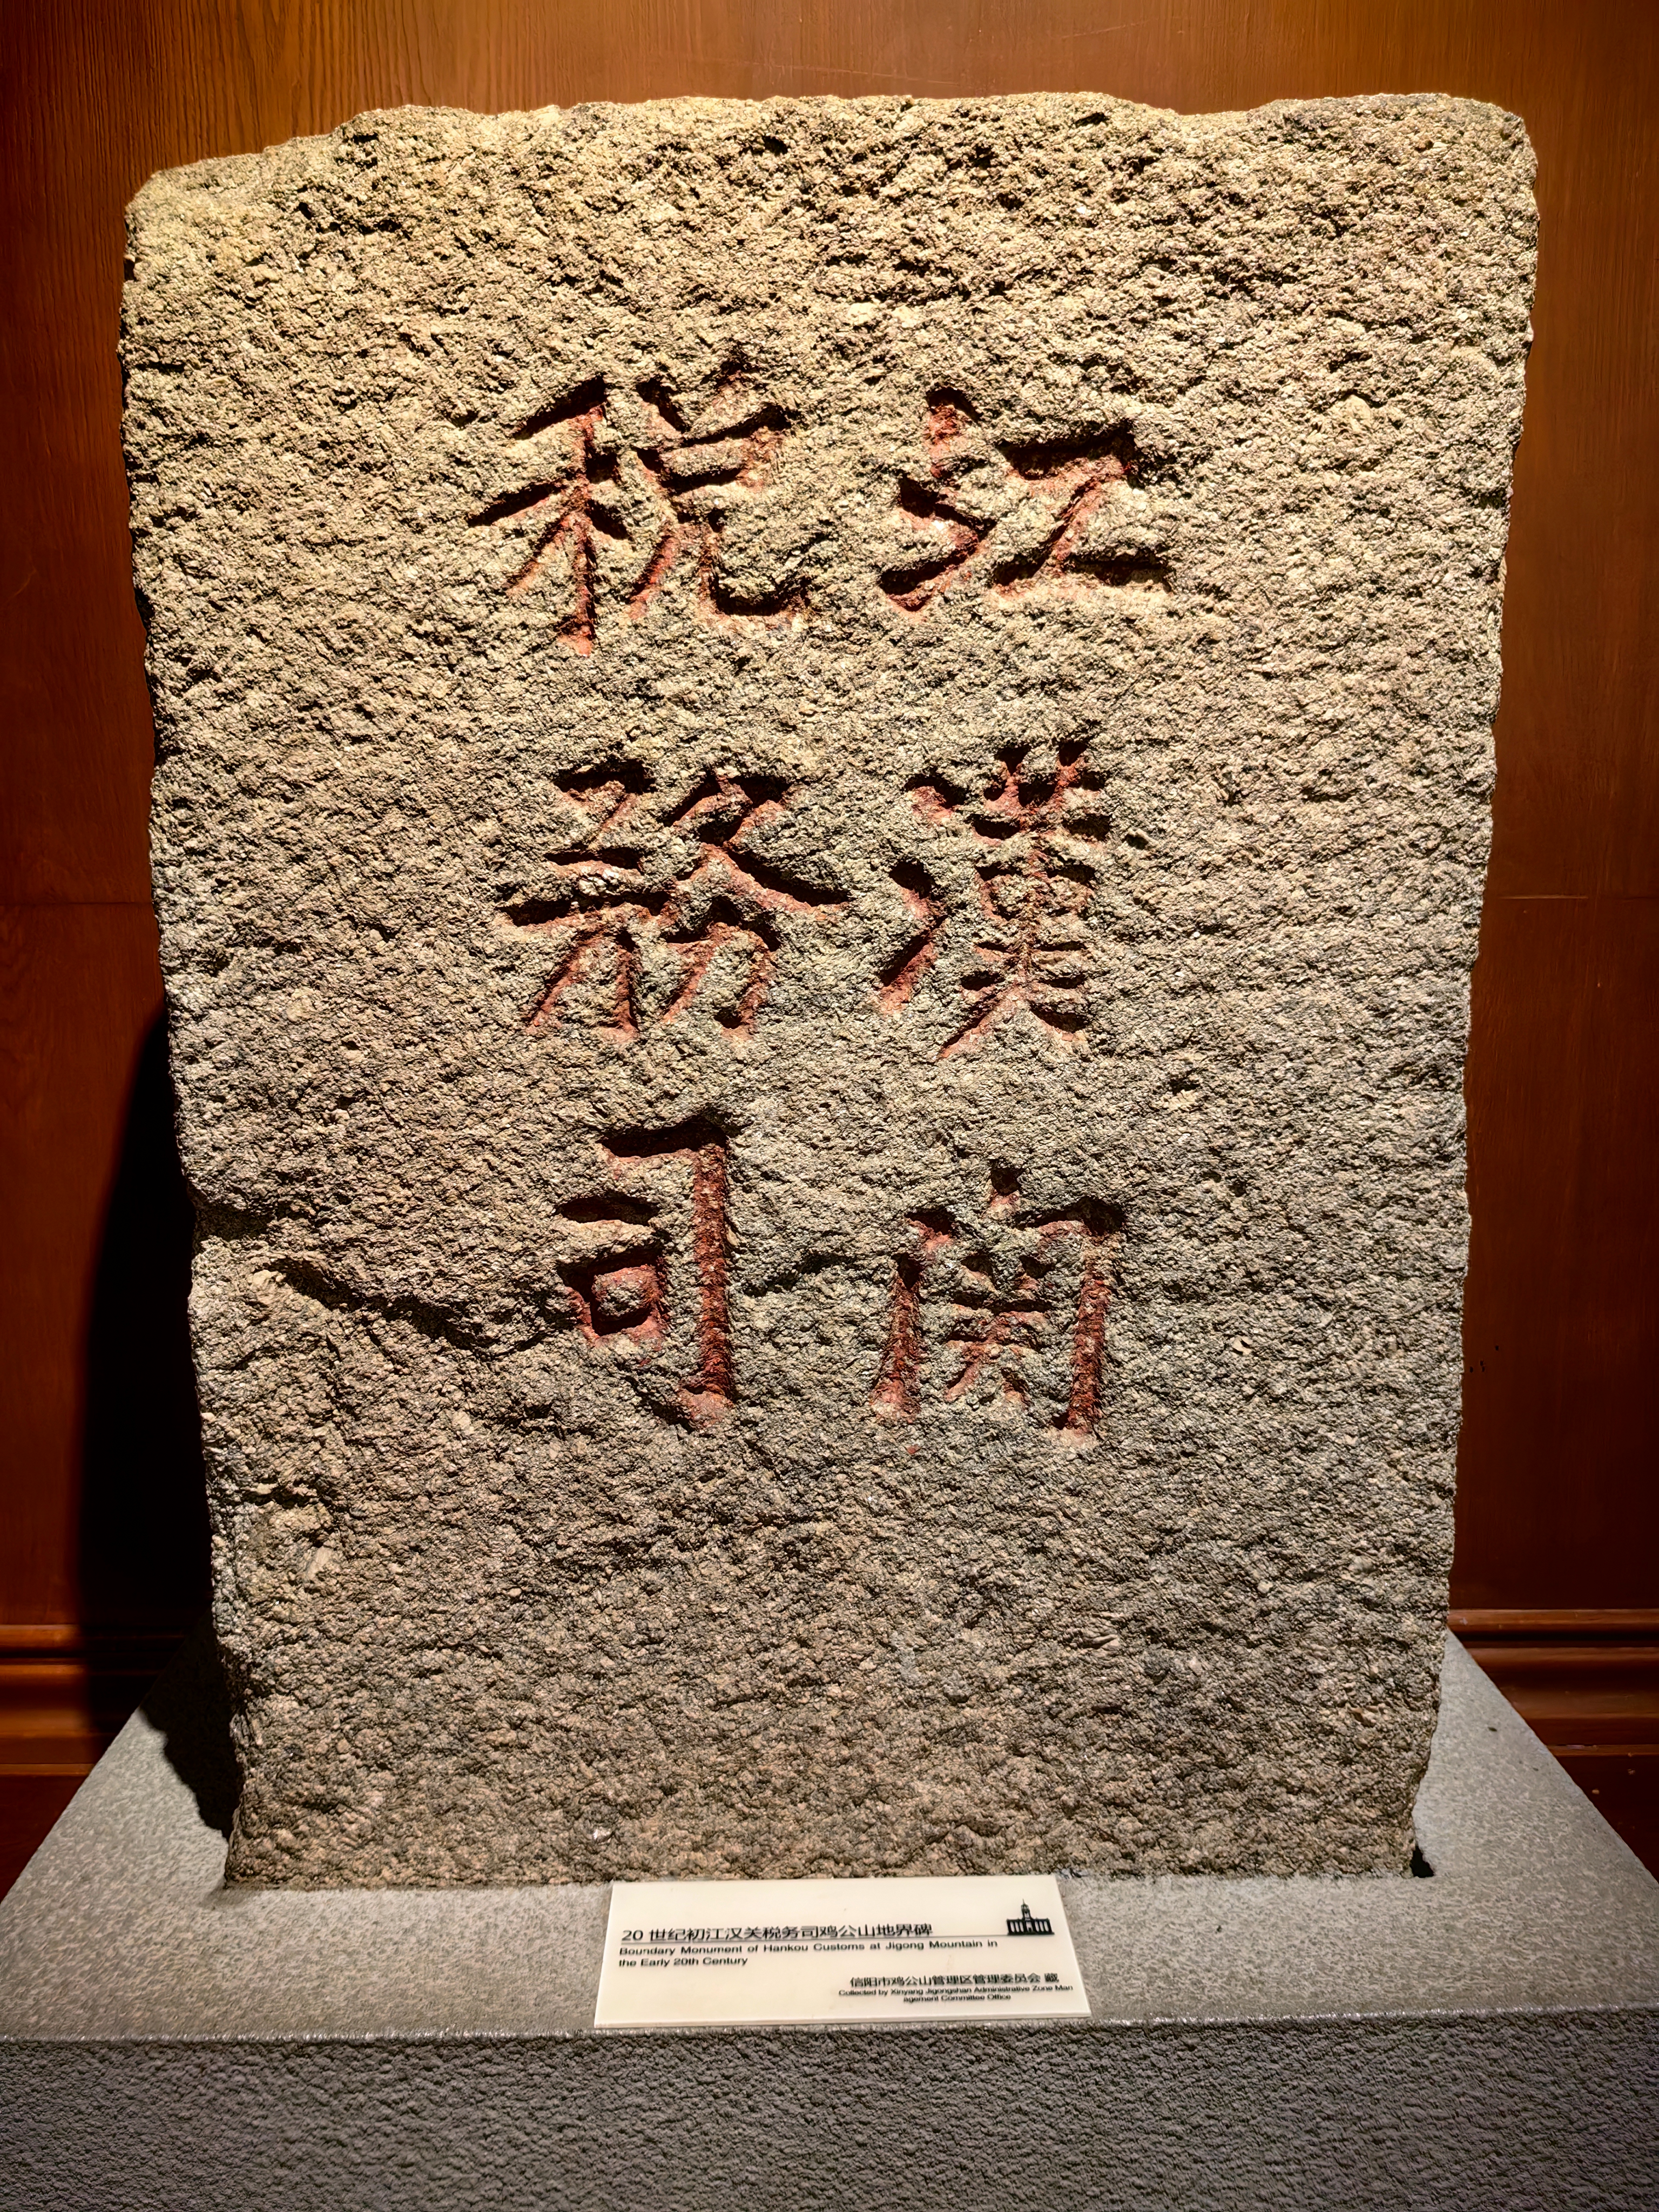 江漢関
稅務司
20世纪初江汉关税务司鸡公山地界碑
Boundary Monument of Hankou Customs at Jigong Mountain in
the Early 20th Century
信阳市鸡公山管理区管理委员会 藏
Collected by Xinyang Jigongshan Administrative Zone Man
agement Committee Office